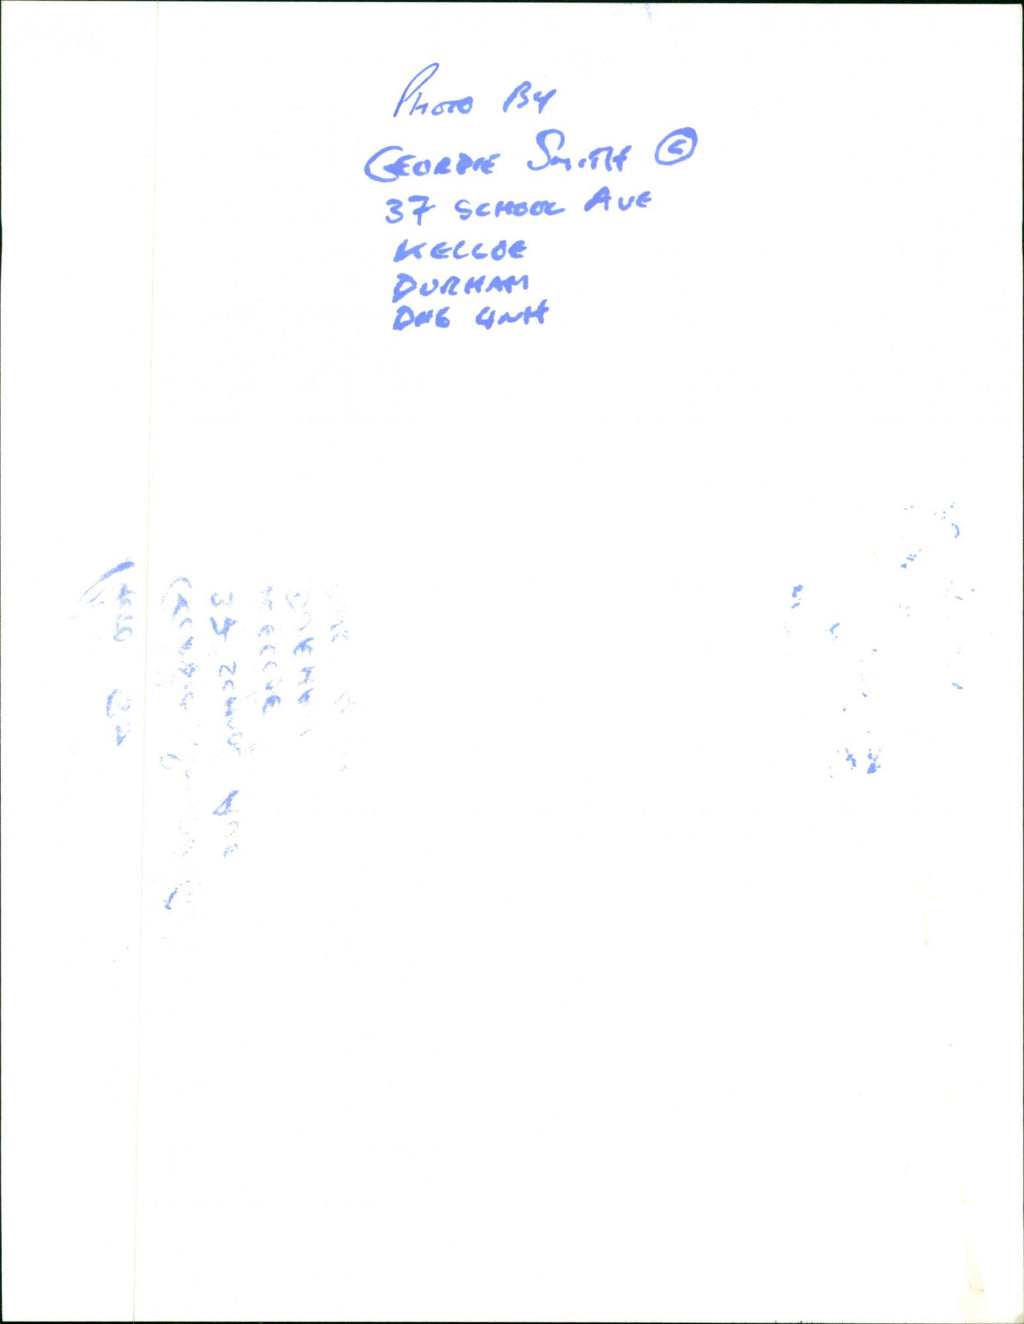 PHOTO BY
GEORDIE SMITH ©
37 SCHOOL AVE
KELLOE
DURHAM
DH6 4NH